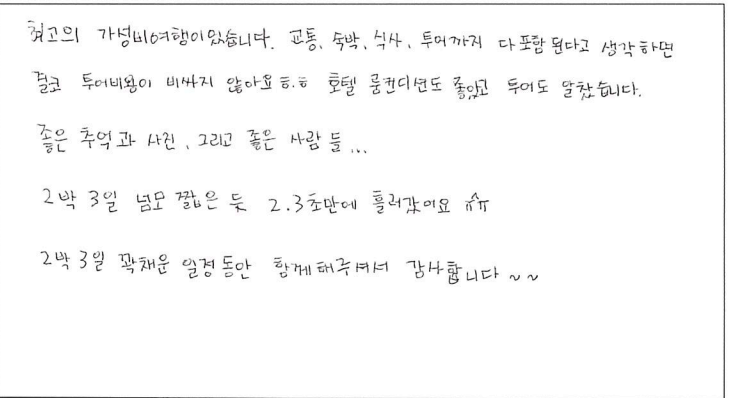 최고의 가성비여행이었습니다. 교통, 숙박, 식사, 투어까지 다 포함 된다고 생각하면
결코 투어비용이 비싸지 않아요ㅎ.ㅎ 호텔 룸컨디션도 좋았고 투어도 알찼습니다.
좋은 추억과 사진, 그리고 좋은 사람들...
2박 3일 넘모 짧은 듯 2.3초만에 흘러갔어요 ㅠ^ㅠ
2박 3일 꽉채운 일정동안 함께해주셔서 감사합니다 ~~